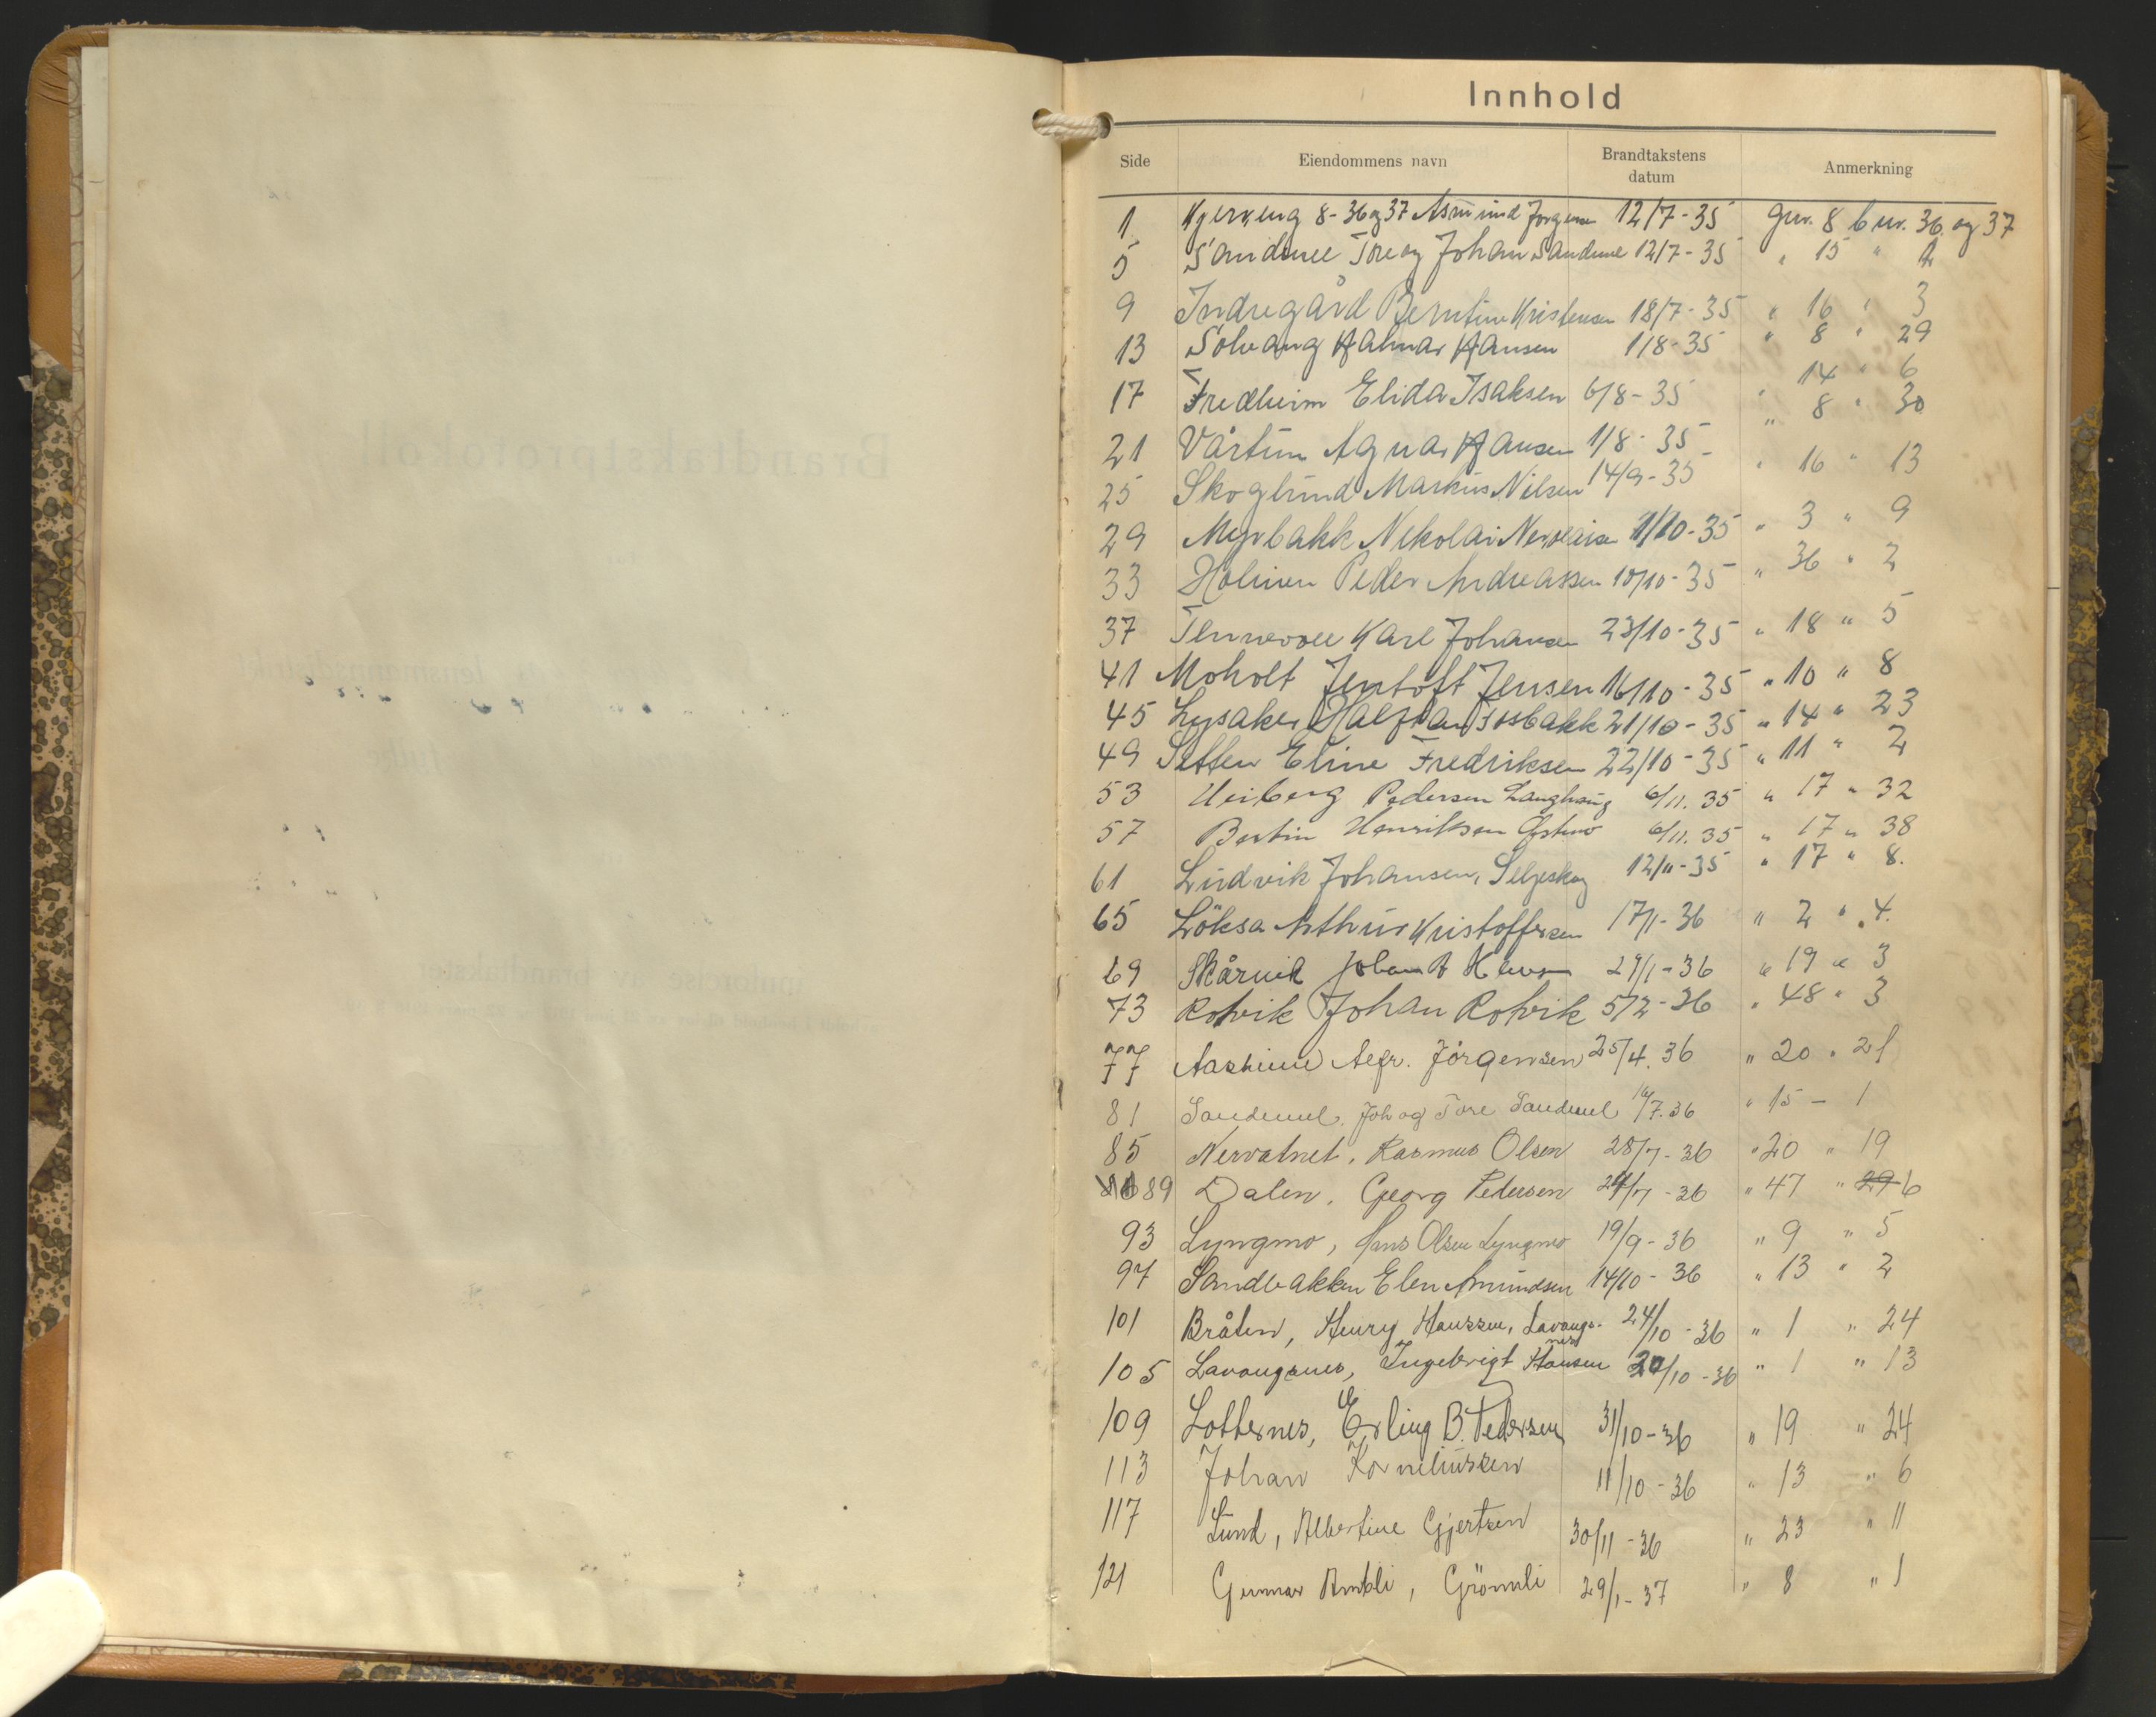 Innhold
Side Eiendommens navn Brandtakstens datum Anmerkning
1 Kjerneng 8-36 og 37 Asmund Jørgensen 12/7-35 gnr. 8 bnr. 36 og 37
5 Sandmel Tore og Johan Sandmel 12/7-35 " 15 "
9 Indregård Berntine Kristensen 18/7-35 " 16 " 3
13 Solvang Halmar Hansen 1/8-35 " 8 " 29
17 Fredheim Elida Isaksen 6/8-35 " 14 " 6
21 Vårtun Agnar Hansen 1/8-35 " 8 " 30
25 Skoglund Markus Nilsen 14/9-35 " 16 " 13
29 Myrbakk Nikolai 1/10-35 " 3 " 9
33 Holmen Peder Andreassen 10/10-35 " 36 " 2
37 Tennevoll Karl Johansen 23/10-35 " 18 " 5
41 Moholt Jentoft Jensen 16/10-35 " 10 " 8
45 Lysaker Halfdan Fosbakk 21/10-35 " 14 " 23
49 Sletten Eline Fredriksen 22/10-35 " 11 " 2
53 Heiberg Pedersen Langhaug 6/11. 35 " 17 " 32
57 Bertin Henriksen 6/11. 35 " 17 " 38
61 Ludvik Johansen, Seljeskog 12/11-35 " 17 " 8.
65 Löksa Arthur Kristoffersen 17/1-36 " 2 " 4.
69 Skårvik Johan A 29/1-36 " 19 " 3
73 Rotvik Johan Rotvik 5/2-36 " 48 " 3
77 Aasheim Alfr. Jörgensen 25/4. 36 " 20 " 21
81 Sandmel, Joh og Tore Sandmel 16/7.36 " 15 - 1
85 Nervatnet, Rasmus Olsen 28/7-36 " 20 " 19
89 Dalen, Georg Pedersen 29/7-36 " 47 " 29 6
93 Lyngmo, Hans Olsen Lyngmo 19/9-36 " 9 " 5
97 Sandbakken Elen Amundsen 14/10-36 " 13 " 2
101 Bråten, Henry Hanssen, Lavangsnes 24/10-36 " 1 " 24
105 Lavangsnes, Ingebrigt Hansen 20/10-36 " 1 " 13
109 Lotternes, Erling B. Pedersen 31/10-36 " 19 " 24
113 Johan Korneliussen 11/10-36 " 13 " 6
117 Lund, Albertine Gjertsen 30/11-36 " 23 " 11
121 Gunnar Ambli, Grönnli 29/1-37 " 8 " 1